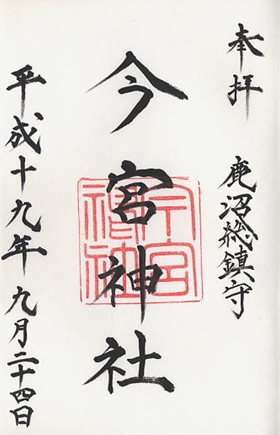 奉拝
鹿沼総鎮守
今宮神社
今宮神社
平成十九年九月二十四日